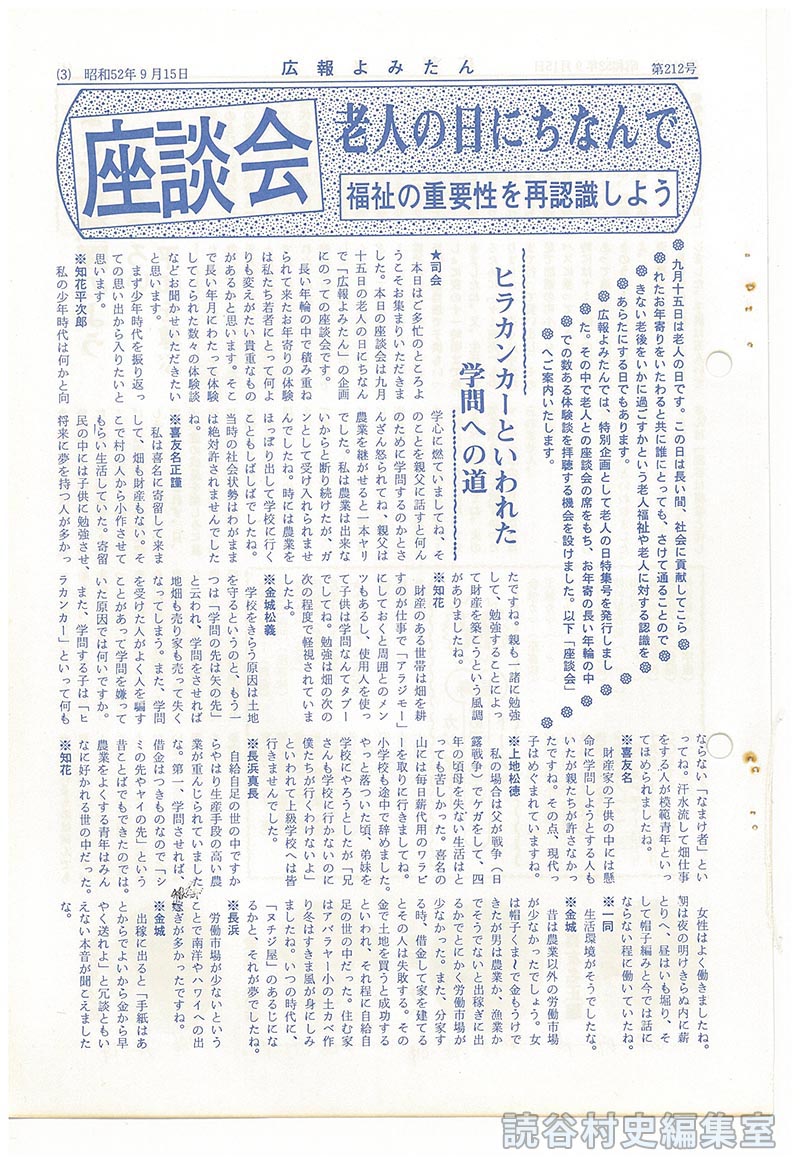 (3) 昭和52年9月15日
広報よみたん
第212号
座談会
老人の日にちなんで
福祉の重要性を再認識しよう
九月十五日は老人の日です。この日は長い間、社会に貢献してこら
れたお年寄りをいたわると共に誰にとっても、さけて通ることので
きない老後をいかに過ごすかという老人福祉や老人に対する認識を
あらたにする日でもあります。
広報よみたんでは、特別企画として老人の日特集号を発行しまし
た。その中で老人との座談会の席をもち、お年寄の長い年輪の中
での数ある体験談を拝聴する機会を設けました。以下「座談会」
へご案内いたします。
ヒラカンカーといわれた
学問への道
★司会
本日はご多忙のところよ
うこそお集まりいただきま
した。本日の座談会は九月
十五日の老人の日にちなん
で「広報よみたん」の企画
にのっての座談会です。
長い年輪の中で積み重ね
られて来たお年寄りの体験
は私たち若者にとって何よ
りも変えがたい貴重なもの
があるかと思います。そこ
で長い年月にわたって体験
してこられた数々の体験談
などお聞かせいただきたい
と思います。
まず少年時代を振り返っ
ての思い出から入りたいと
思います。
※知花平次郎
私の少年時代は何かと向
学心に燃ていましてね、そ
のことを親父に話すと何ん
のために学問するのかとさ
んざん怒られてね、親父は
農業を継がせると一本ヤリ
でした。私は農業は出来な
いからと断り続けたが、ガ
ンとして受け入れられませ
んでしたね。時には農業を
ほっぽり出して学校に行く
こともしばしばでしたね。
当時の社会状勢はわがまま
は絶対許されませんでした
ね。
※喜友名正謹
私は喜名に寄留して来ま
して、畑も財産もない。そ
こで村の人から小作させて
もらい生活していた。寄留
民の中には子供に勉強させ、
将来に夢を持つ人が多かっ
たですね。親も一諸に勉強
して、勉強することによっ
て財産を築こうという風調
がありましたね。
※知花
財産のある世帯は畑を耕
すのが仕事で「アラジモー」
にしておくと周囲とのメン
ツもあるし、使用人を使っ
て子供は学問なんてタブー
でしてね。勉強は畑の次の
次の程度で軽視されていま
したよ。
※金城松義
学校をきらう原因は土地
を守るというのと、もう一
つは「学問の先は矢の先」
と云われ、学問をさせれば
地畑も売り家も売って失く
なってしまう。また、学問
を受けた人がよく人を騙す
ことがあって学問を嫌って
いた原因では何いですか。
また、学問する子は「ヒ
ラカンカー」といって何も
ならない「なまけ者」とい
ってね。汗水流して畑仕事
をする人が模範青年といっ
てほめられましたね。
※喜友名
財産家の子供の中には懸
命に学問しようとする人も
いたが親たちが許さなかっ
たですね。その点、現代っ
子はめぐまれていますね。
※上地松徳
私の場合は父が戦争（日
露戦争）でケガをして、四
年の頃母を失ない生活はと
っても苦しかった。喜名の
山には毎日薪代用のワラビ
ーを取りに行きましてね。
小学校も途中で辞めました。
やっと落ついた頃、弟妹を
学校にやろうとしたが「兄
さんも学校に行かないのに
僕たちが行くわけないよ」
といわれて上級学校へは皆
行きませんでした。
※長浜真長
自給自足の世の中ですか
らやはり生産手段の高い農
業が重んじられていました
な。第一、学問させれば、
借金はつきものなので「シ
ミの先やヤイの先」という
昔ことばでもできたのでは。
農業をよくする青年はみん
なに好かれる世の中だった。
※知花
女性はよく働きましたね。
朝は夜の明けきらぬ内に薪
とりへ、昼はいも堀り、そ
して帽子編みと今では話に
ならない程に働いていたな。
※一同
生活環境がそうでしたな。
※金城
昔は農業以外の労働市場
が少なかったでしょう。女
は帽子くまーで金もうけで
きたが男は農業か、漁業か
でそうでないと出稼ぎに出
るかでとにかく労働市場が
少なかった。また、分家す
る時、借金して家を建てる
とその人は失敗する。その
金で土地を買うと成功する
といわれ、それ程に自給自
足の世の中だった。住む家
はアバラヤー小の土カベ作
り冬はすきま風が身にしみ
ましたね。いつの時代に、
「ヌチジ屋」のあるじにな
るかと、それが夢でしたね。
※長浜
労働市場が少ないという
ことで南洋やハワイへの出
稼ぎが多かったですね。
※金城
出稼に出ると「手紙はあ
とからでよいから金から早
やく送れよ」と冗談ともい
えない本音が聞こえました
な。
読谷村史編集室